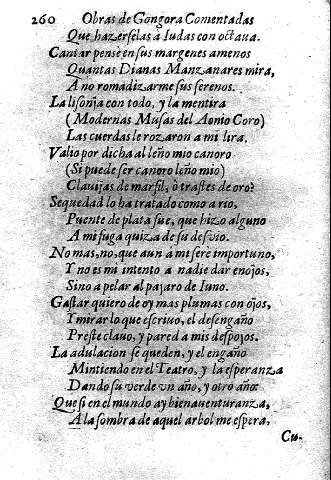 260 Obras de Gongora Comentadas
Que hazerselas a Iudas con octava.
Cantar pensè en sus margenes amenos
Quantas Dianas Manzanares mira,
A no romadizarme sus serenos.
La lisonja con todo, y la mentira
(Modernas Musas del Aonio Coro)
Las cuerdas le rozaron a mi lira.
Valiò por dicha al leño mio canoro
(Si puede ser canoro leño mio)
Clavijas de marfil, ò trastes de oro?
Sequedad lo ha tratado como a rio,
Puente de plata fue, que hizo alguno
A mi fuga quiza de su desvio.
No mas, no, que aun a mi serè importuno,
Y no es mi intento a nadie dar enojos,
Sino apelar al pajaro de Iuno.
Gastar quiero de oy mas plumas con ojos,
Y mirar lo que escrivo, el desengaño
Preste clavo, y pared a mis despojos.
La adulacion se queden, y el engaño
Mintiendo en el Teatro, y la esperanza
Dando su verde un año, y otro año:
Que si en el mundo ay bienaventuranza,
A la sombra de aquel arbol me espera,
Cu-